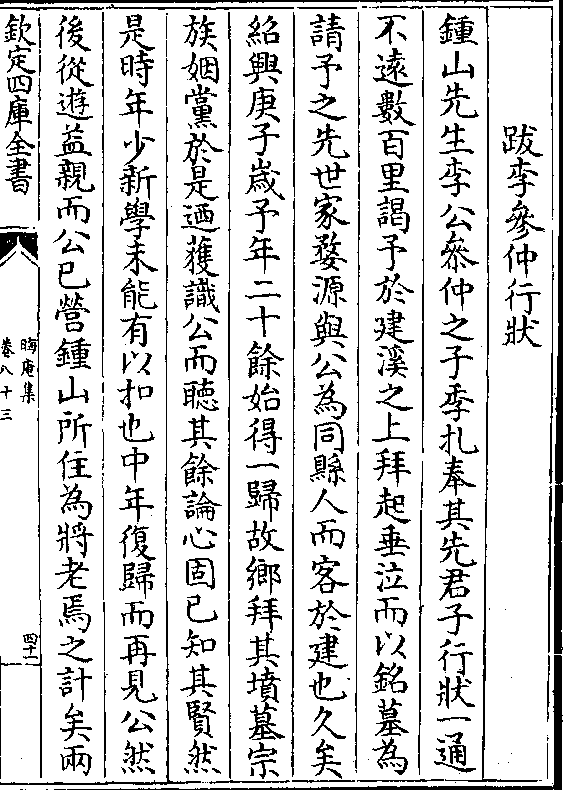 跋李參仲行狀
鍾山先生李公叅仲之子季札奉其先君子行狀一通
不逺數百里謁予於建溪之上拜起垂泣而以銘墓為
請予之先世家婺源與公為同縣人而客於建也久矣
紹興庚子嵗予年二十餘始得一歸故鄉拜其墳墓宗
族姻黨於是迺獲識公而聽其餘論心固已知其賢然
是時年少新學未能有以扣也中年復歸而再見公然
後從遊益親而公已營鍾山所住為將老焉之計矣兩
欽定四庫全書
晦庵集
卷八十三
四十一